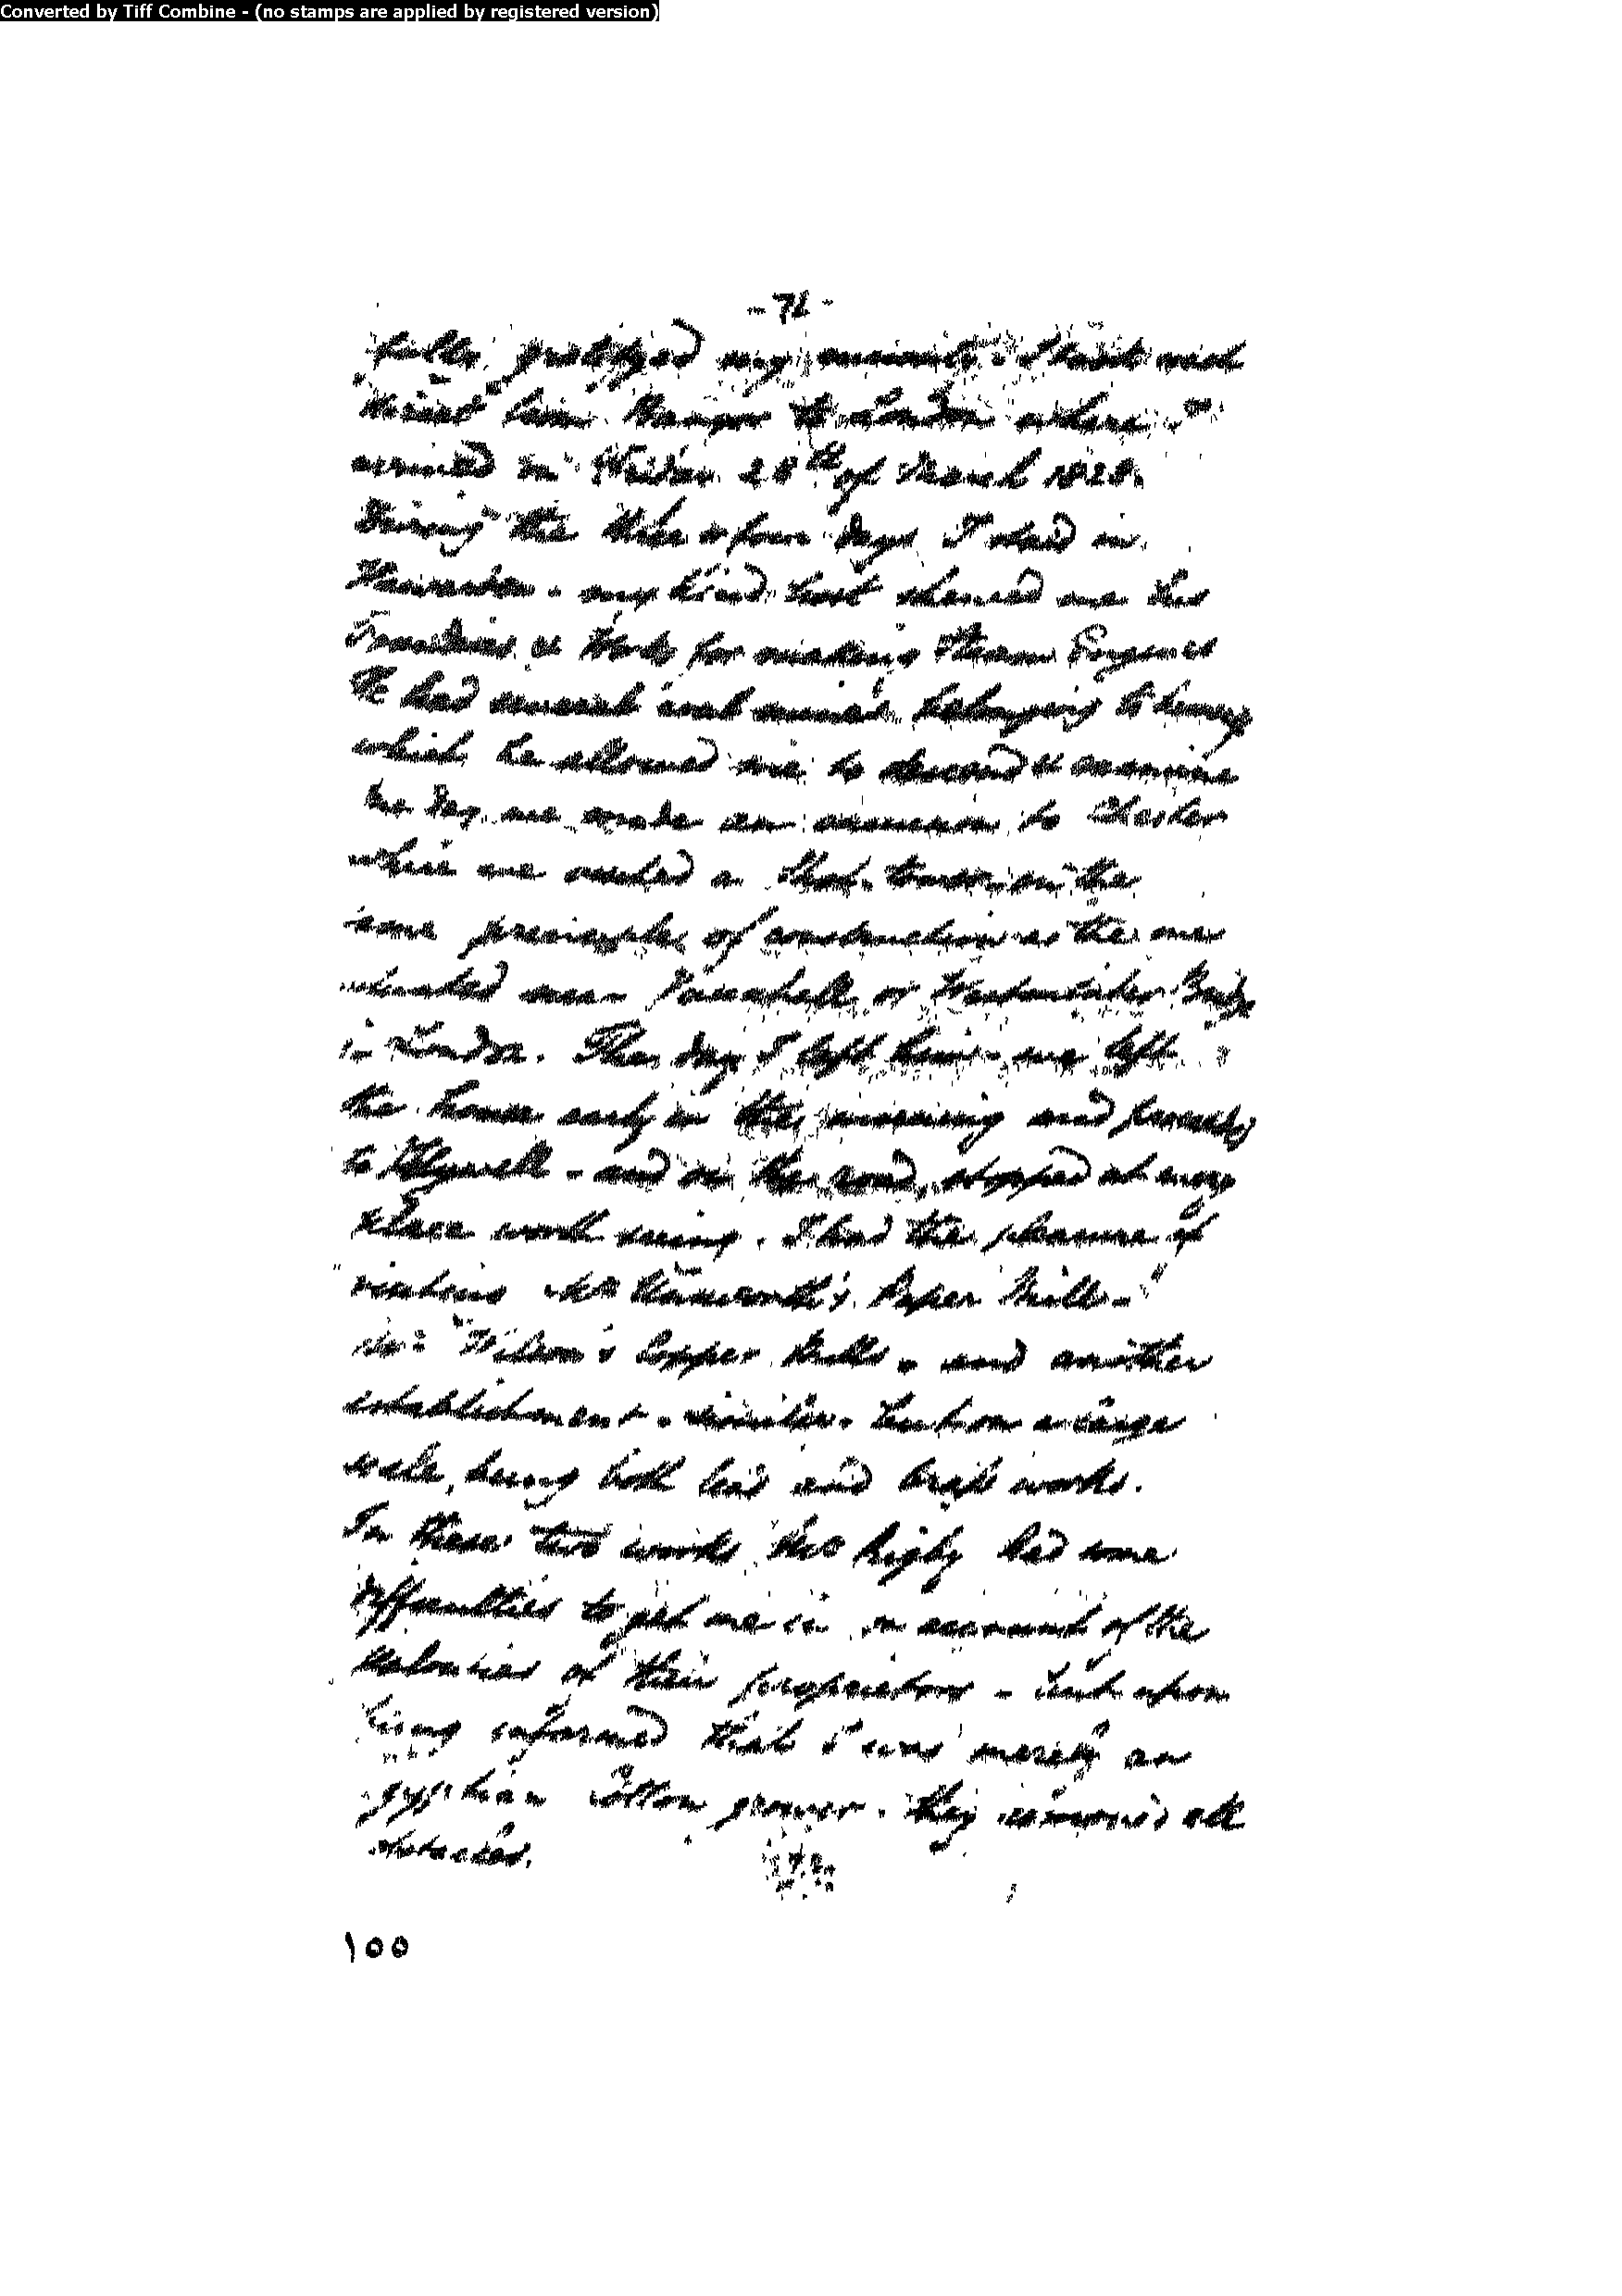 Converted by Tiff Combine - (no stamps are applied by registered version)
- 71 -
fully gratified my curiosity. I
to London where I
arrived on Friday 28th of March 1828.
During the three or four days I staid in
Hawarden - my kind host shewed me his
Foundries & Works for making Steam Engines
He had several coal mines belonging to himself
which he allowed me to descend & examine
One day we made an excursion to Chester
where we visited a Shot-tower on the
same principles of construction as the one
situated near Vauxhall or Westminster Bridge
in London. The day I left him - we left
the house early in the morning and proceeded
to Holywell - and on the road, stopped at every
place worth seeing. I had the pleasure of
visiting Mr Paper Mill -
do: "Wilson's Copper Mills - and another
establishment - similar - but on a large
scale, being both lead and brass works.
In these two works Mr Rigby had some
difficulties to get me in on account of the
jealousies of their proprietors - but upon
being informed that I was merely an
Egyptian Cotton grower - they removed all
obstacles.
١٥٥